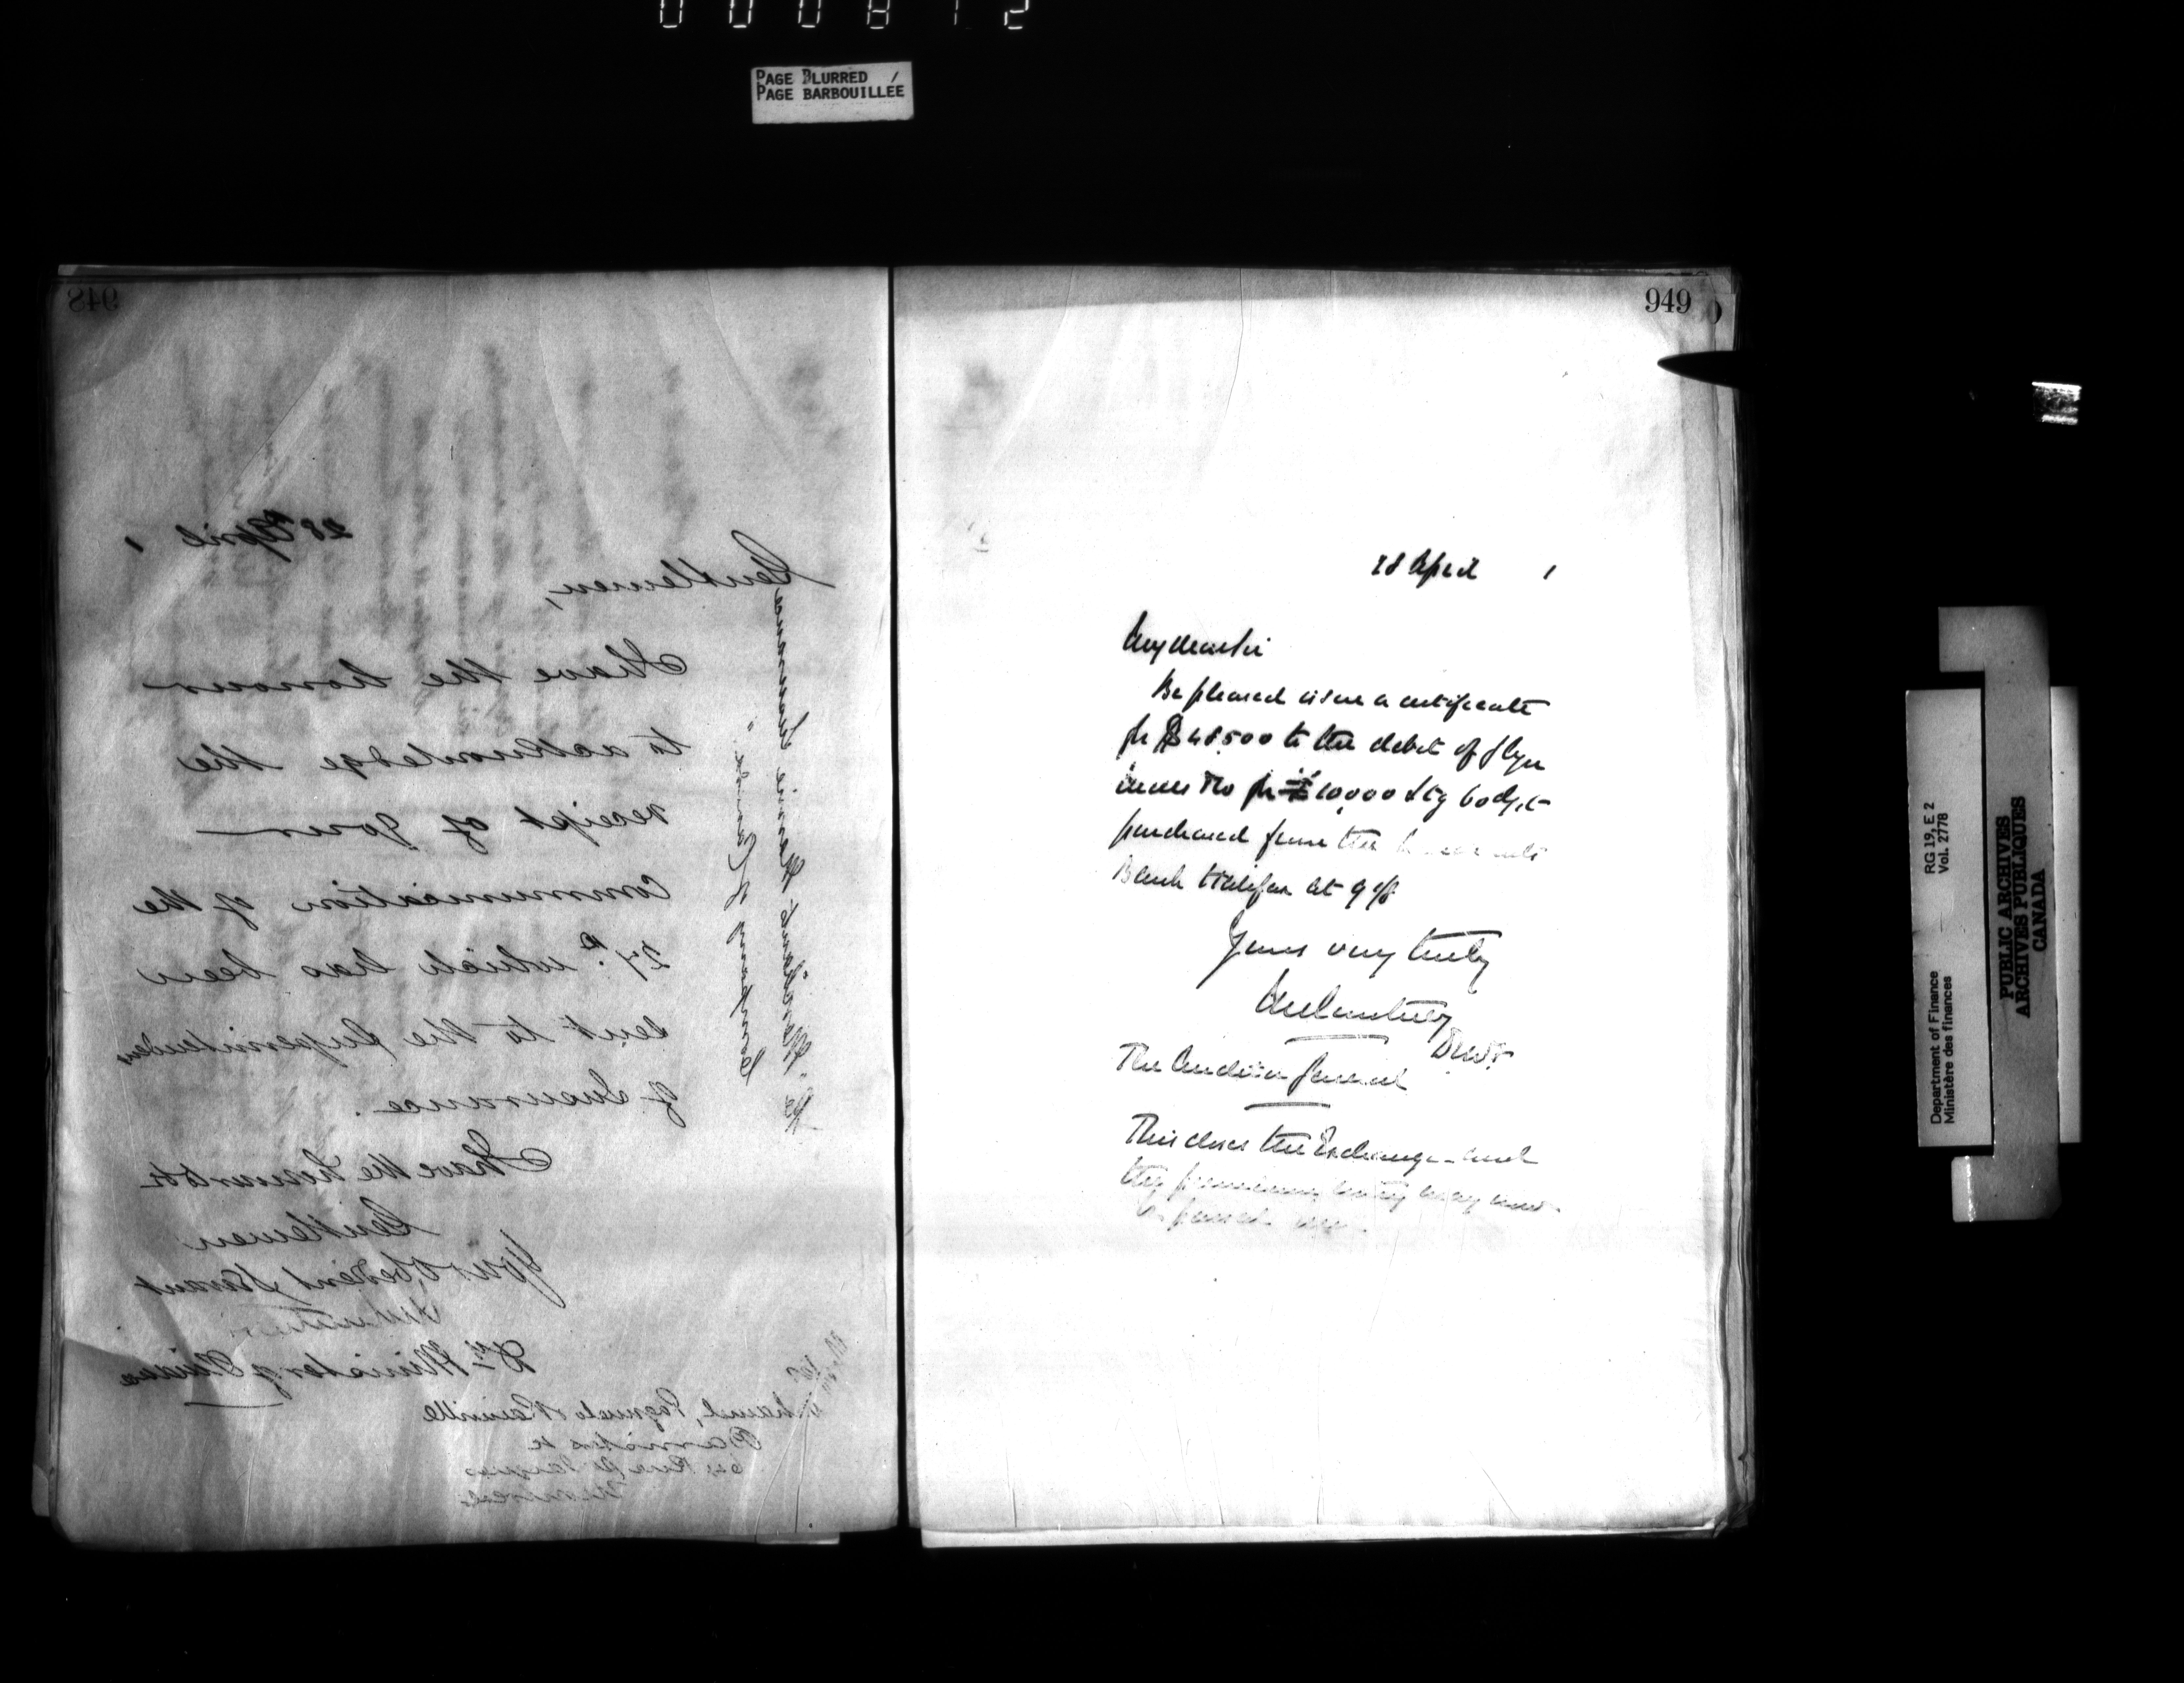 000812
PAGE BLURRED
PAGE BARBOUILLÉE
948
28th April 1
Gentlemen,
I have the honour
to acknowledge the
receipt of your
communication of the
27th which has been
sent to the Superintendent
of Insurance.
I have the honour to be
Gentlemen
Your Obedient Servant
Dy. Minister of Finance
Pagnuelo & Rainville
Barristers &c
Montreal
Re "Merchants Marine Insurance
Company of Canada"
949
28 April 1
My dear Sir
Be pleased issue a certificate
for $48,500 to the debit of
for £10,000 stg 60 d/s
purchased from the
Bank Halifax at 9 %
Yours very truly
JMCourtney
DMF
The Auditor General
This closes the Exchange - and
the may now
be passed
Department of Finance
Ministère des finances
RG 19, E 2
Vol. 2778
PUBLIC ARCHIVES
ARCHIVES PUBLIQUES
CANADA